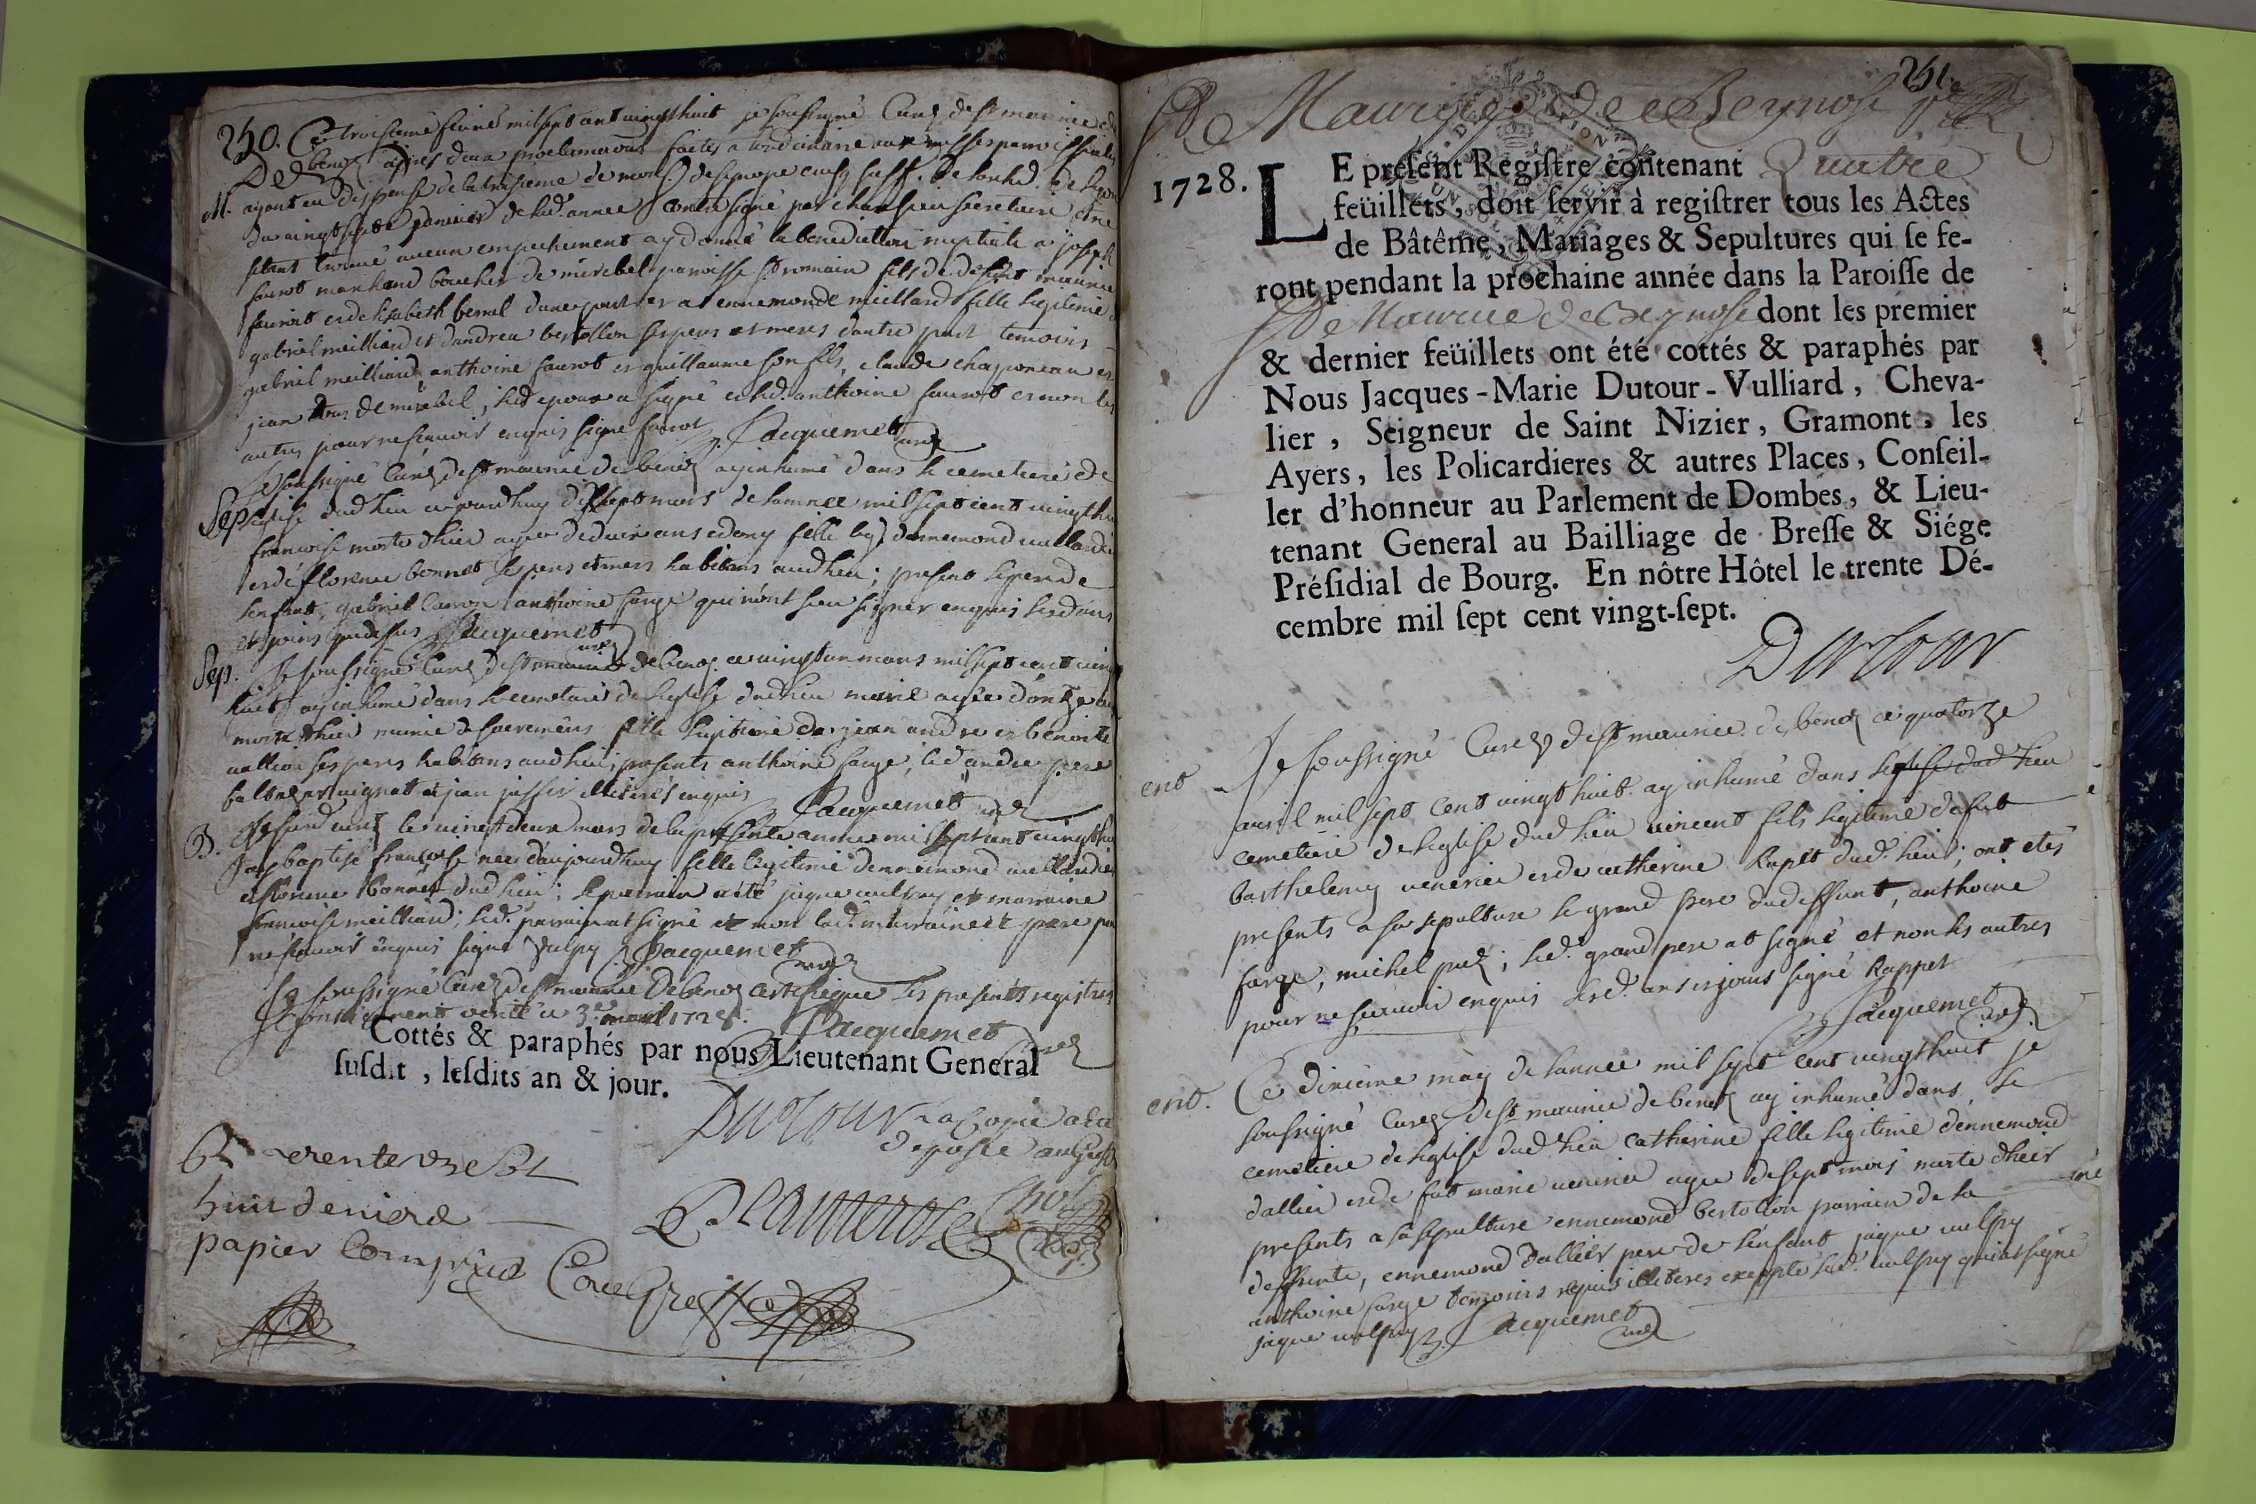 250.
Ce troisieme fevrié mil sept cent vingthuit je soussigné Curé de st maurice de
De benoz apres deux proclamations faites a lordinaire aux messes paroissialles
M. ayant eu dispense de la troisieme de
du vingt sept janvier de lad. annee contresigné par secretaire
setant trouvé aucun empechement ay donné la benediction nuptiale a joseph
favrot marchand boucher de mirebel paroisse st romain fils de defunt maurice
favrot et delisabeth bernal dune part et a ennemonde meilland fille legitime
gabriel meilliard et dandrea bertollon ses pere et mere dautre part temoins
gabriel meilliard, anthoine favrot et guillaume son fils, claude chaponeau et
jean de mirebel, led epoux a signé et led. anthoine favrot et non les
autres pour ne scavoir enquis signe favrot Jacquemet curé
Je soussigné Curé de st maurice de benoz ay inhumé dans le cemetiere de
Sep. leglise dud lieu ce jourdhuy dixsept mars de lannee mil sept cent vingthuit
francoise morte dhier agee de deux ans et demy fille leg. dennemond
et de florence bonnet ses pere et mere habitans aud lieu; present le pere de
lenfant, gabriel Caron, anthoine farge qui nont sceu signer enquis lesd ans
et jours que dessus Jacquemet curé
Sep. Je soussigné Curé de st maurice de benoz ce vingt un mars mil sept cent vingt
huit ay inhumé dans le cemetiere de leglise dud lieu marie agée donze ans
morte dhier munie de sacremens fille legitime de jean andre et benoite
ses peres habitans aud lieu; presents anthoine farge, led andre pere
baltazar vignat et jean illiterés enquis Jacquemet curé
B. Je susd curé le vingt deux mars de la presente annee mil sept cent vingthuit
jay baptisé francoise nee daujourdhuy fille legitime dennemond
et florence bonnet dud lieu; le parrain a été jaque vulpy et marraine
francoise meilliard; led. parrain at signé et non lad. marraine et pere pour
ne scavoir enquis signe vulpy Jacquemet curé
Je soussigné Curé de st maurice De benoz certifique les presents registres
contiennent verité ce 3e 1728. Jacquemet curé
Cottés & paraphés par nous Lieutenant General
ſuſdit, leſdits an & jour.
Dutour La Copie a été
deposée au Greffe
trente
huit deniers
papier Compris
251.
St Maurice de Beynost
1728.
LE preſent Regiſtre contenant Quatre
feüillets, doit ſervir à regiſtrer tous les Actes
de Bâtême, Mariages & Sepultures qui ſe fe-
ront pendant la prochaine année dans la Paroiſſe de
St Maurice de Beynost dont les premier
& dernier feüillets ont été cottés & paraphés par
Nous Jacques-Marie Dutour-Vulliard, Cheva-
lier, Seigneur de Saint Nizier, Gramont, les
Ayers, les Policardieres & autres Places, Conſeil-
ler d'honneur au Parlement de Dombes, & Lieu-
tenant General au Bailliage de Breſſe & Siége
Préſidial de Bourg. En nôtre Hôtel le trente Dé-
cembre mil ſept cent vingt-ſept.
Dutour
Je soussigné Curé de st maurice de benoz ce quatorze
ent avril mil sept cent vingthuit ay inhumé dans leglise dud lieu
cemetiere de leglise dud lieu vincent fils legitime de fut
barthelemy venerier et de catherine Rapet dud. lieu; ont etés
presents a sa sepulture le grand pere dud deffunt, anthoine
farge, michel ; led. grand pere at signé et non les autres
pour ne scavoir enquis lesd. an et jours signé Rappet
Jacquemet curé
ent. Ce dixieme may de lannee mil sept cent vingthuit je
soussigné Curé de st maurice de benoz ay inhumé dans le
cemetiere de leglise dud lieu catherine fille legitime dennemond
dallier et de fut marie venerier agee de sept mois morte dhier
presents a sa sepulture ennemond bertollon parrain de la
deffunte, ennemond dallier pere de lenfant jaque vulpy
anthoine farge temoins requis illiteres excepté led. vulpy qui at signé
jaque vulpy Jacquemet curé